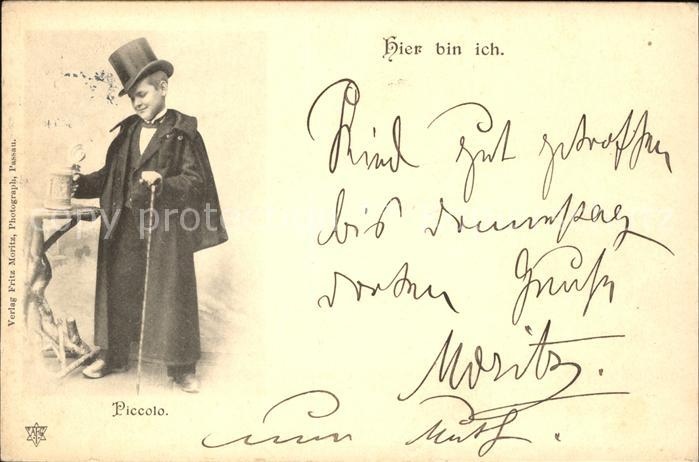 Hier bin ich.
Ried gut getroffen
bis donnerstag
dorten Gruß
Moritz.
nun
Piccolo.
Verlag Fritz Moritz, Photograph, Passau.
copy protected